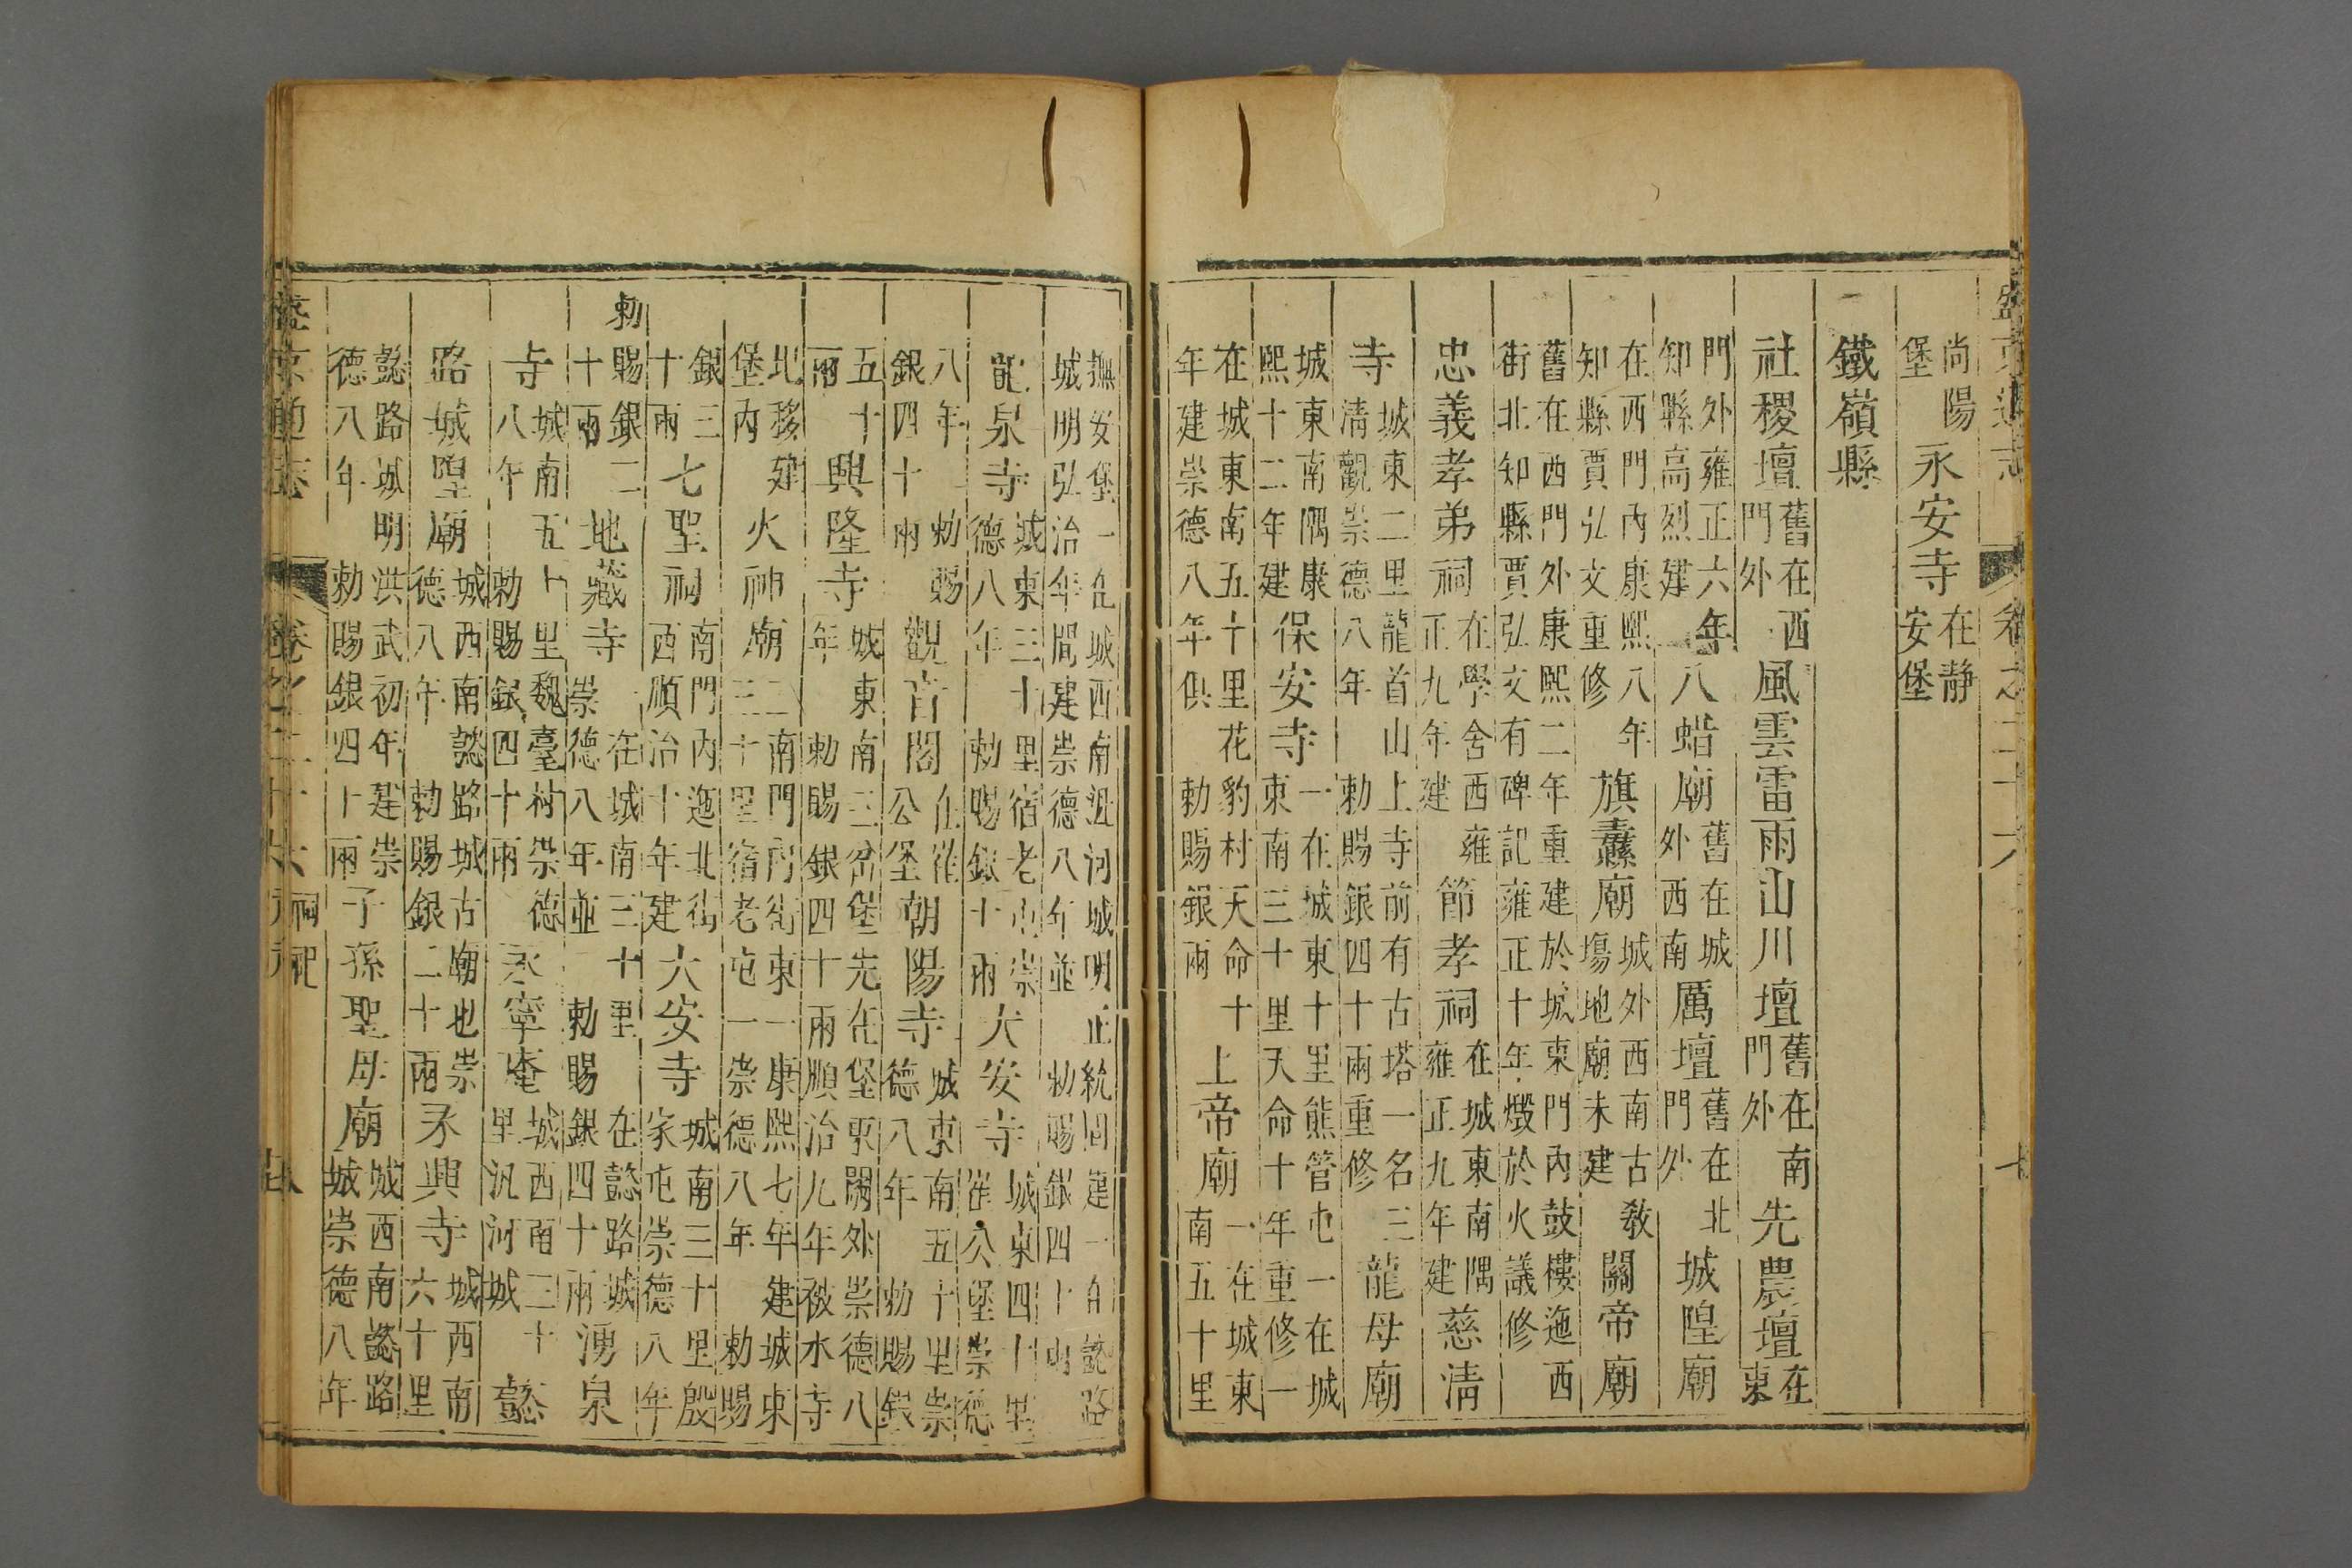 盛京通志 卷之二十六 七
尚陽堡 永安寺 在靜安堡
鐵嶺縣
社稷壇 舊在西門外 風雲雷雨山川壇 舊在南門外 先農壇 在東
門外雍正六年知縣高烈建 八蜡廟 舊在城外西南 厲壇 舊在北門外 城隍廟
在西門內康熙八年知縣賈弘文重修 旗纛廟 城外西南古教場地廟未建 關帝廟
舊在西門外康熙二年重建於城東門內鼓樓迤西街北知縣賈弘文有碑記雍正十年燬於火議修
忠義孝弟祠 在學舍西雍正九年建 節孝祠 在城東南隅雍正九年建 慈清
寺 城東二里龍首山上寺前有古塔一名三清觀崇德八年勅賜銀四十兩重修 龍母廟
城東南隅康熙十二年建 保安寺 一在城東十里熊管屯一在城東南三十里天命十年重修一
在城東南五十里花豹村天命十年建崇德八年俱勅賜銀兩 上帝廟 一在城東南五十里
撫安堡一在城西南汎河城明正統間建一在懿路城明弘治年間建崇德八年並勅賜銀四十兩
龍泉寺 城東三十里宿老屯崇德八年勅賜銀十兩 大安寺 城東四十里崔公堡崇德
八年勅賜銀四十兩 觀音閣 在崔公堡 朝陽寺 城東南五十里崇德八年勅賜銀
五十兩 興隆寺 城東南三岔堡先在堡東關外崇德八年勅賜銀四十兩順治九年被水寺
北移建堡內 火神廟 二南門內街東一康熙七年建城東三十里宿老屯一崇德八年勅賜
銀三十兩 七聖祠 南門內迤北街西順治十年建 大安寺 城南三十里殷家屯崇德八年
勅賜銀二十兩 地藏寺 一在城南三十里一在懿路城崇德八年並勅賜銀四十兩 湧泉
寺 城南五十里魏臺村崇德八年勅賜銀四十兩 永寧菴 城西南三十里汎河城 懿
路城隍廟 城西南懿路城古廟也崇德八年勅賜銀二十兩 永興寺 城西南六十里
懿路城明洪武初年建崇德八年勅賜銀四十兩 子孫聖母廟 城西南懿路城崇德八年
盛京通志 卷之二十六 祠祀 八